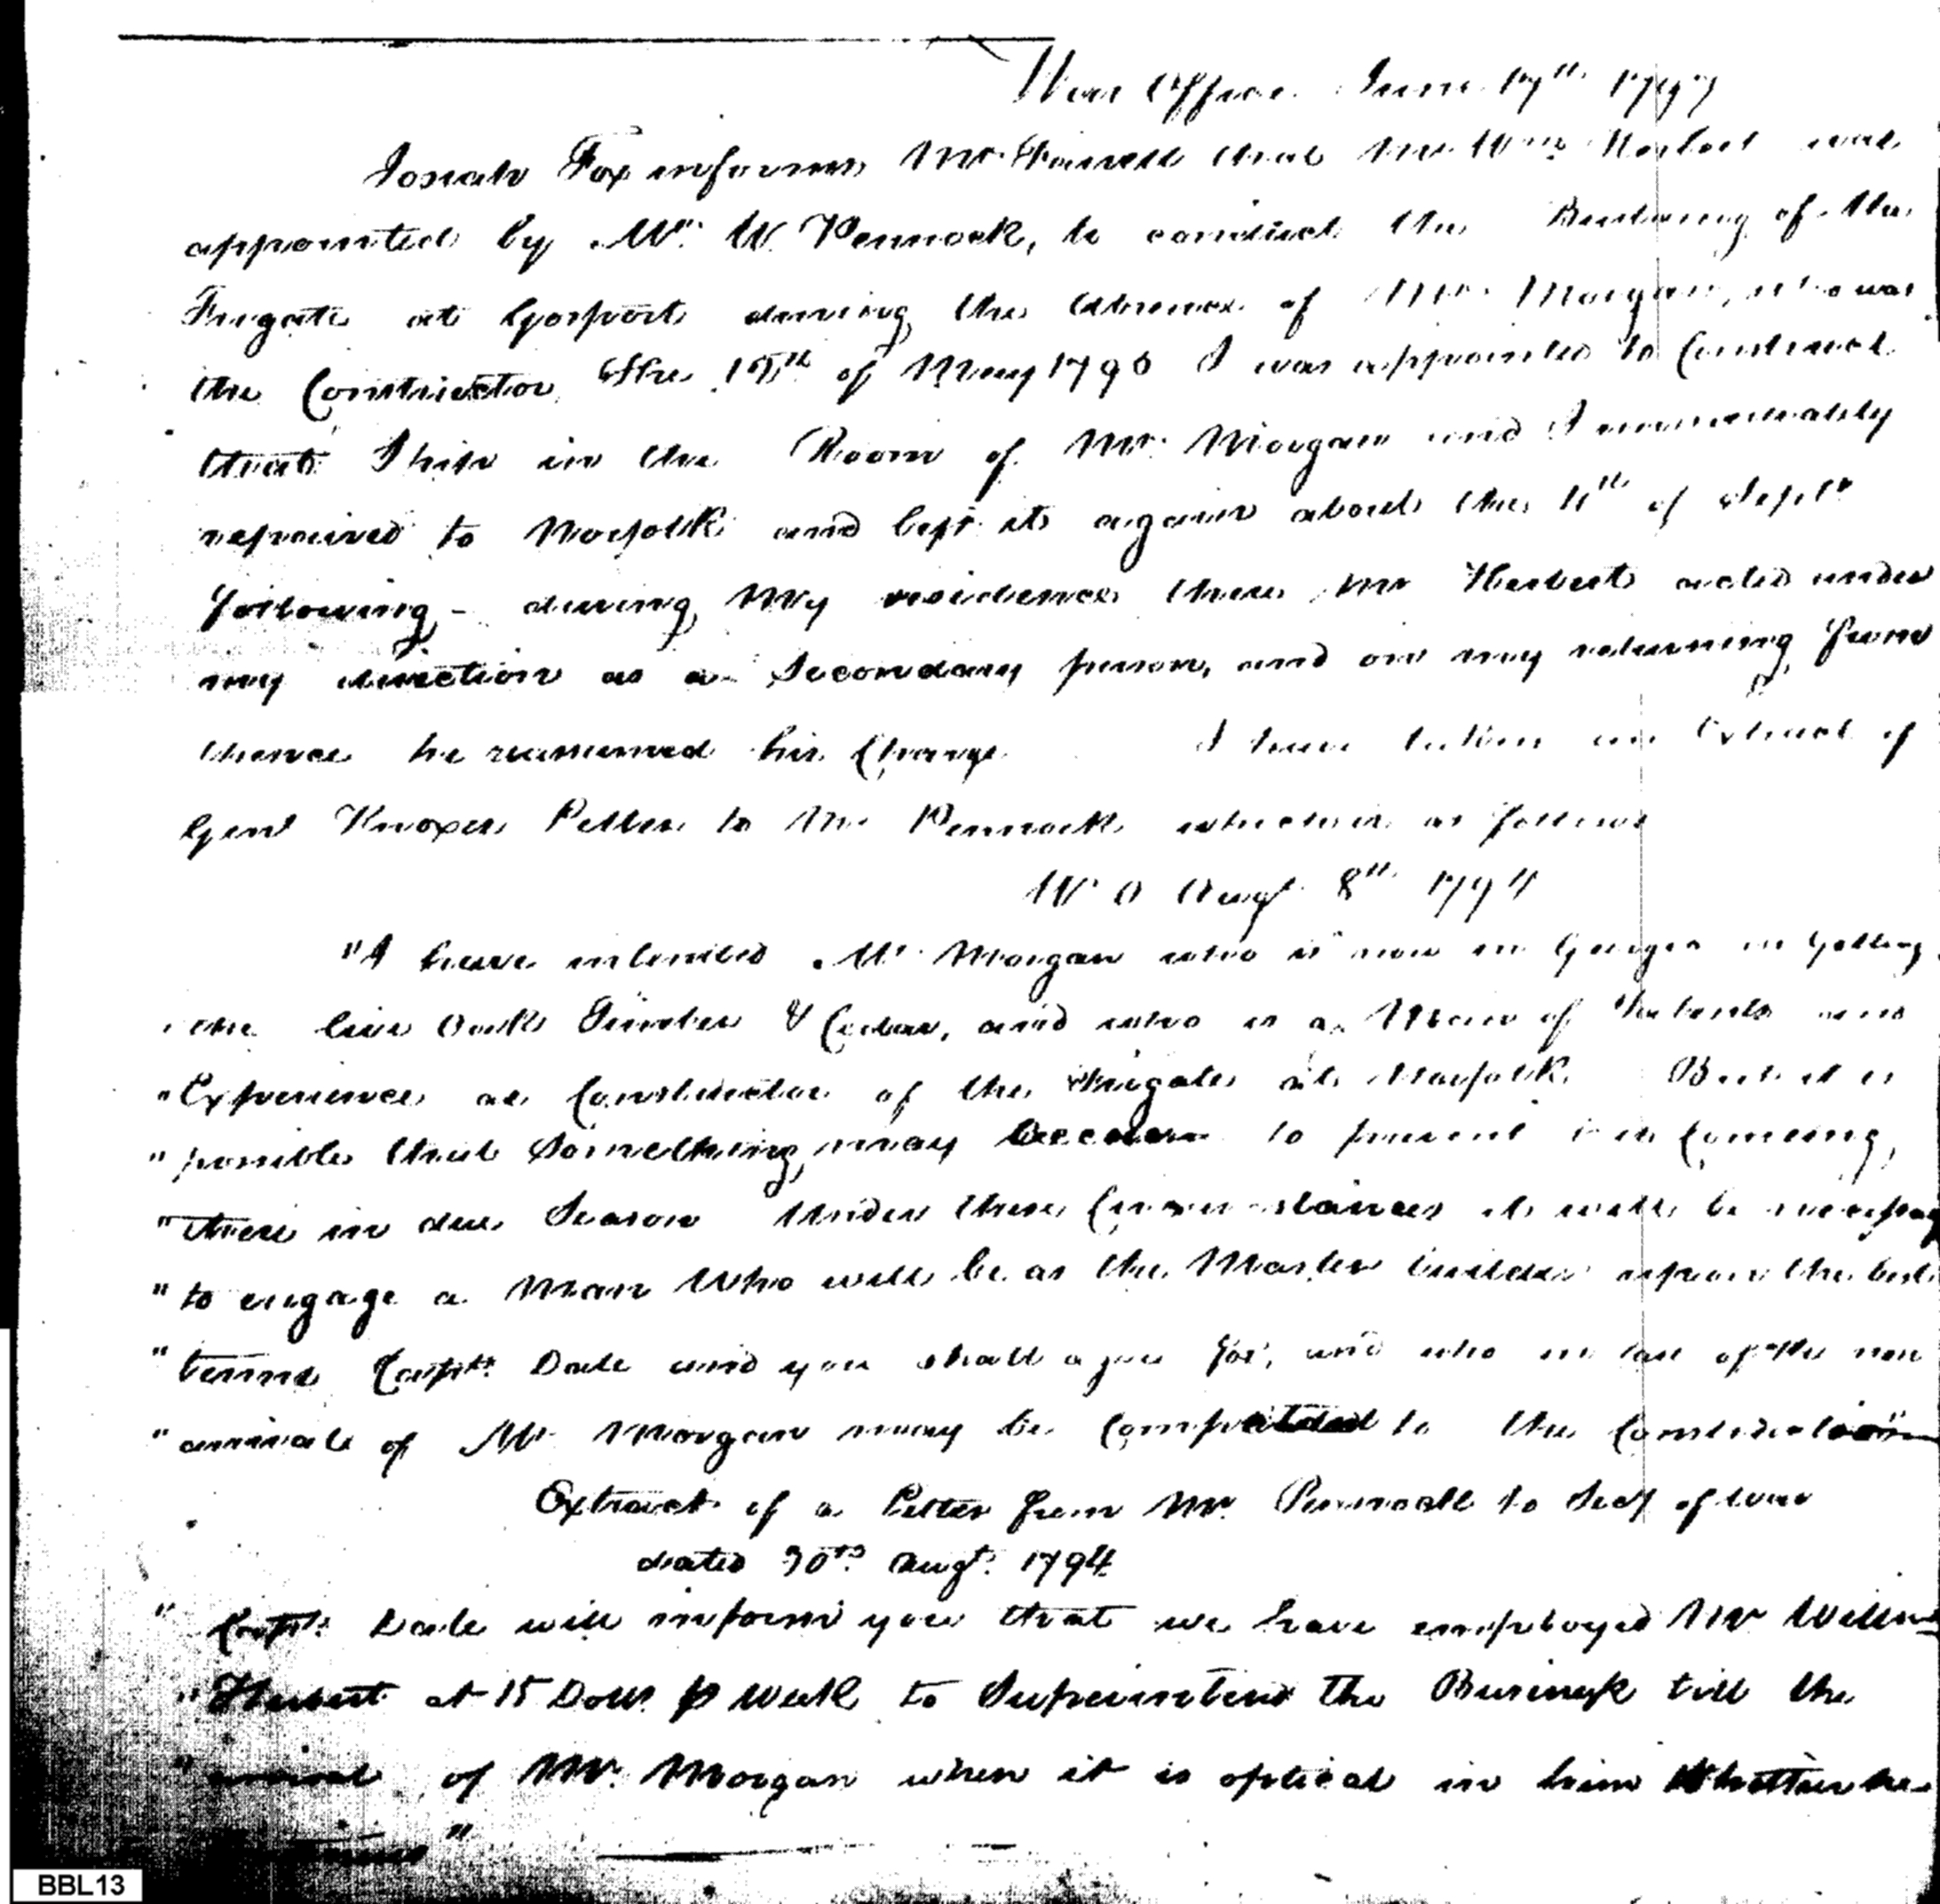 War Office June 17th 1797
Josiah Fox informs Mr Farrell that Mr Wm Herbert was
appointed by Mr W Pennock, to conduct the Building of the
Frigate at Gosport during the absence of Mr Morgan, who was
the Constructor, The of May 179 I was appointed to Construct
that Ship in the Room of Mr Morgan and I immediately
repaired to Norfolk and left it again about the of Septr
following - during my residence there Mr Herbert acted under
my direction as a Secondary person, and on my returning from
thence he reassumed his Charge I have taken an Extract of
Genl Knoxes Letter to Mr Pennock which is as follows
W O Augt 8th 1794
"I have intended Mr Morgan who is now in Georgia in getting
the live Oak Timber & Cedar, and who is a Man of talents and
"Experience as Constructor of the Frigate at Norfolk But it is
"possible that something may to prevent his coming
"there in due Season Under these Circumstances it will be necessary
"to engage a Man Who will be as the Master builder upon the best
"terms Captn Dale and you shall agree for, and who in case of the non
"arrivale of Mr Morgan may be to the
Extract of a Letter from Mr. Pennock to Secy of war
dated 30th Augt. 1794
"Captn. Dale will inform you that we have employed Mr Willm
"Herbert at 15 Dolls p Week to Superintend the Business till the
"arrival of Mr. Morgan when it is optical in him Whether he
"
BBL13